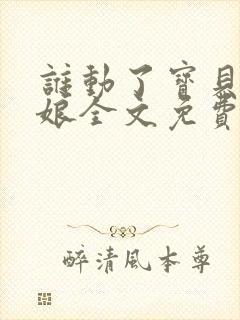 誰動了寶貝
娘全文免費
醉清風本尊